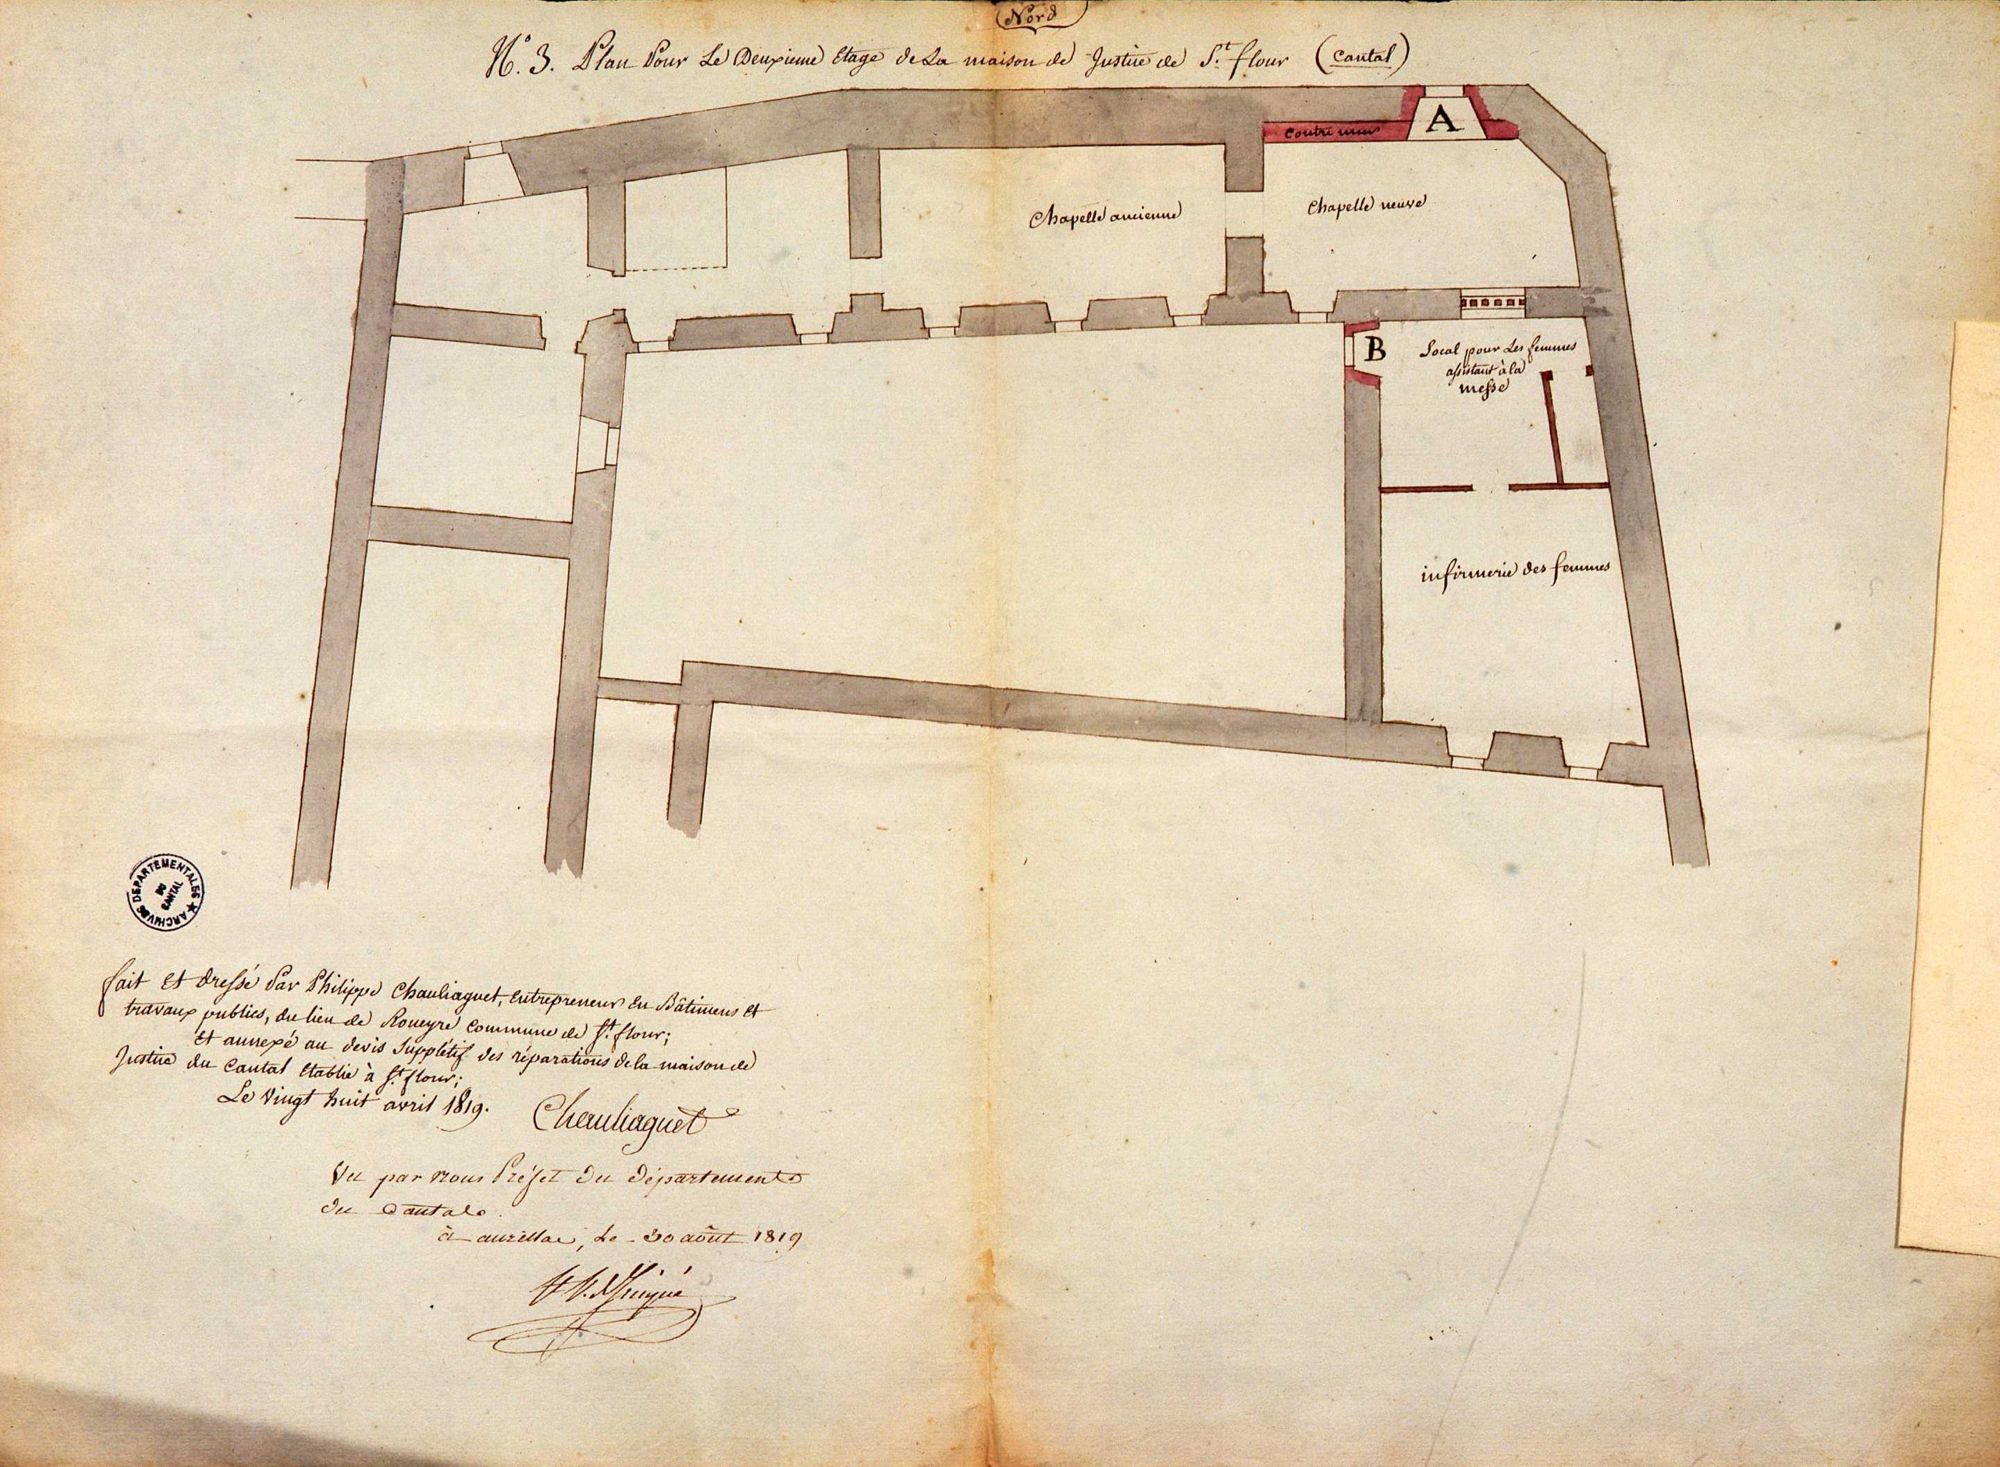 Nord
N.º 3. Plan Pour Le Deuxieme Etage de La maison de Justice de S.t flour (Cantal)
contre mur
A
Chapelle ancienne
Chapelle neuve
B
Local pour Les femmes
assistant à la
messe
infirmerie des femmes
ARCHIVES DEPARTEMENTALES ★
DU
CANTAL
fait Et dressé Par Philippe Chauliaguet, Entrepreneur En Bâtimens Et
travaux publics, du lieu de Roueyre Commune de S.t flour;
Et annexé au devis Supplétif des réparations de la maison de
Justice du Cantal Etablie à S.t flour;
Le Vingt huit avril 1819.
Chauliaguet
Vu par nous Préfet du département
du Cantal.
à aurillac, Le 30 août 1819